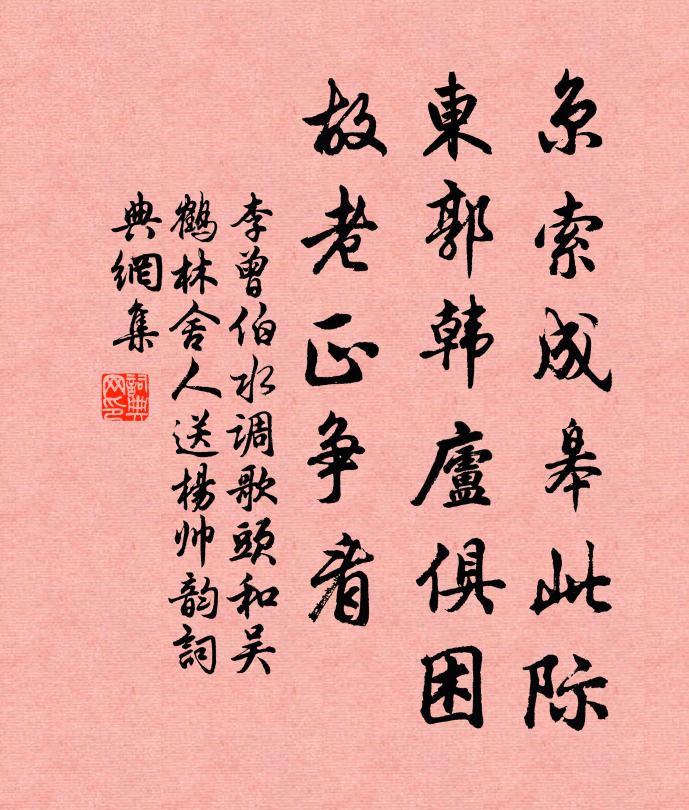 京索成皋此际
東郭韩廬俱困
故老正争看
李曾伯水调歌頭和吴
鶴林舍人送楊帅韵詞
典網集
詞典
网印